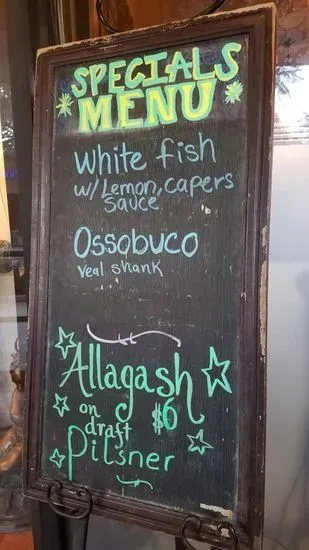 SPECIALS
MENU
White fish
w/ Lemon, capers
sauce
Ossobuco
Veal shank
Allagash
on $6
draft
Pilsner